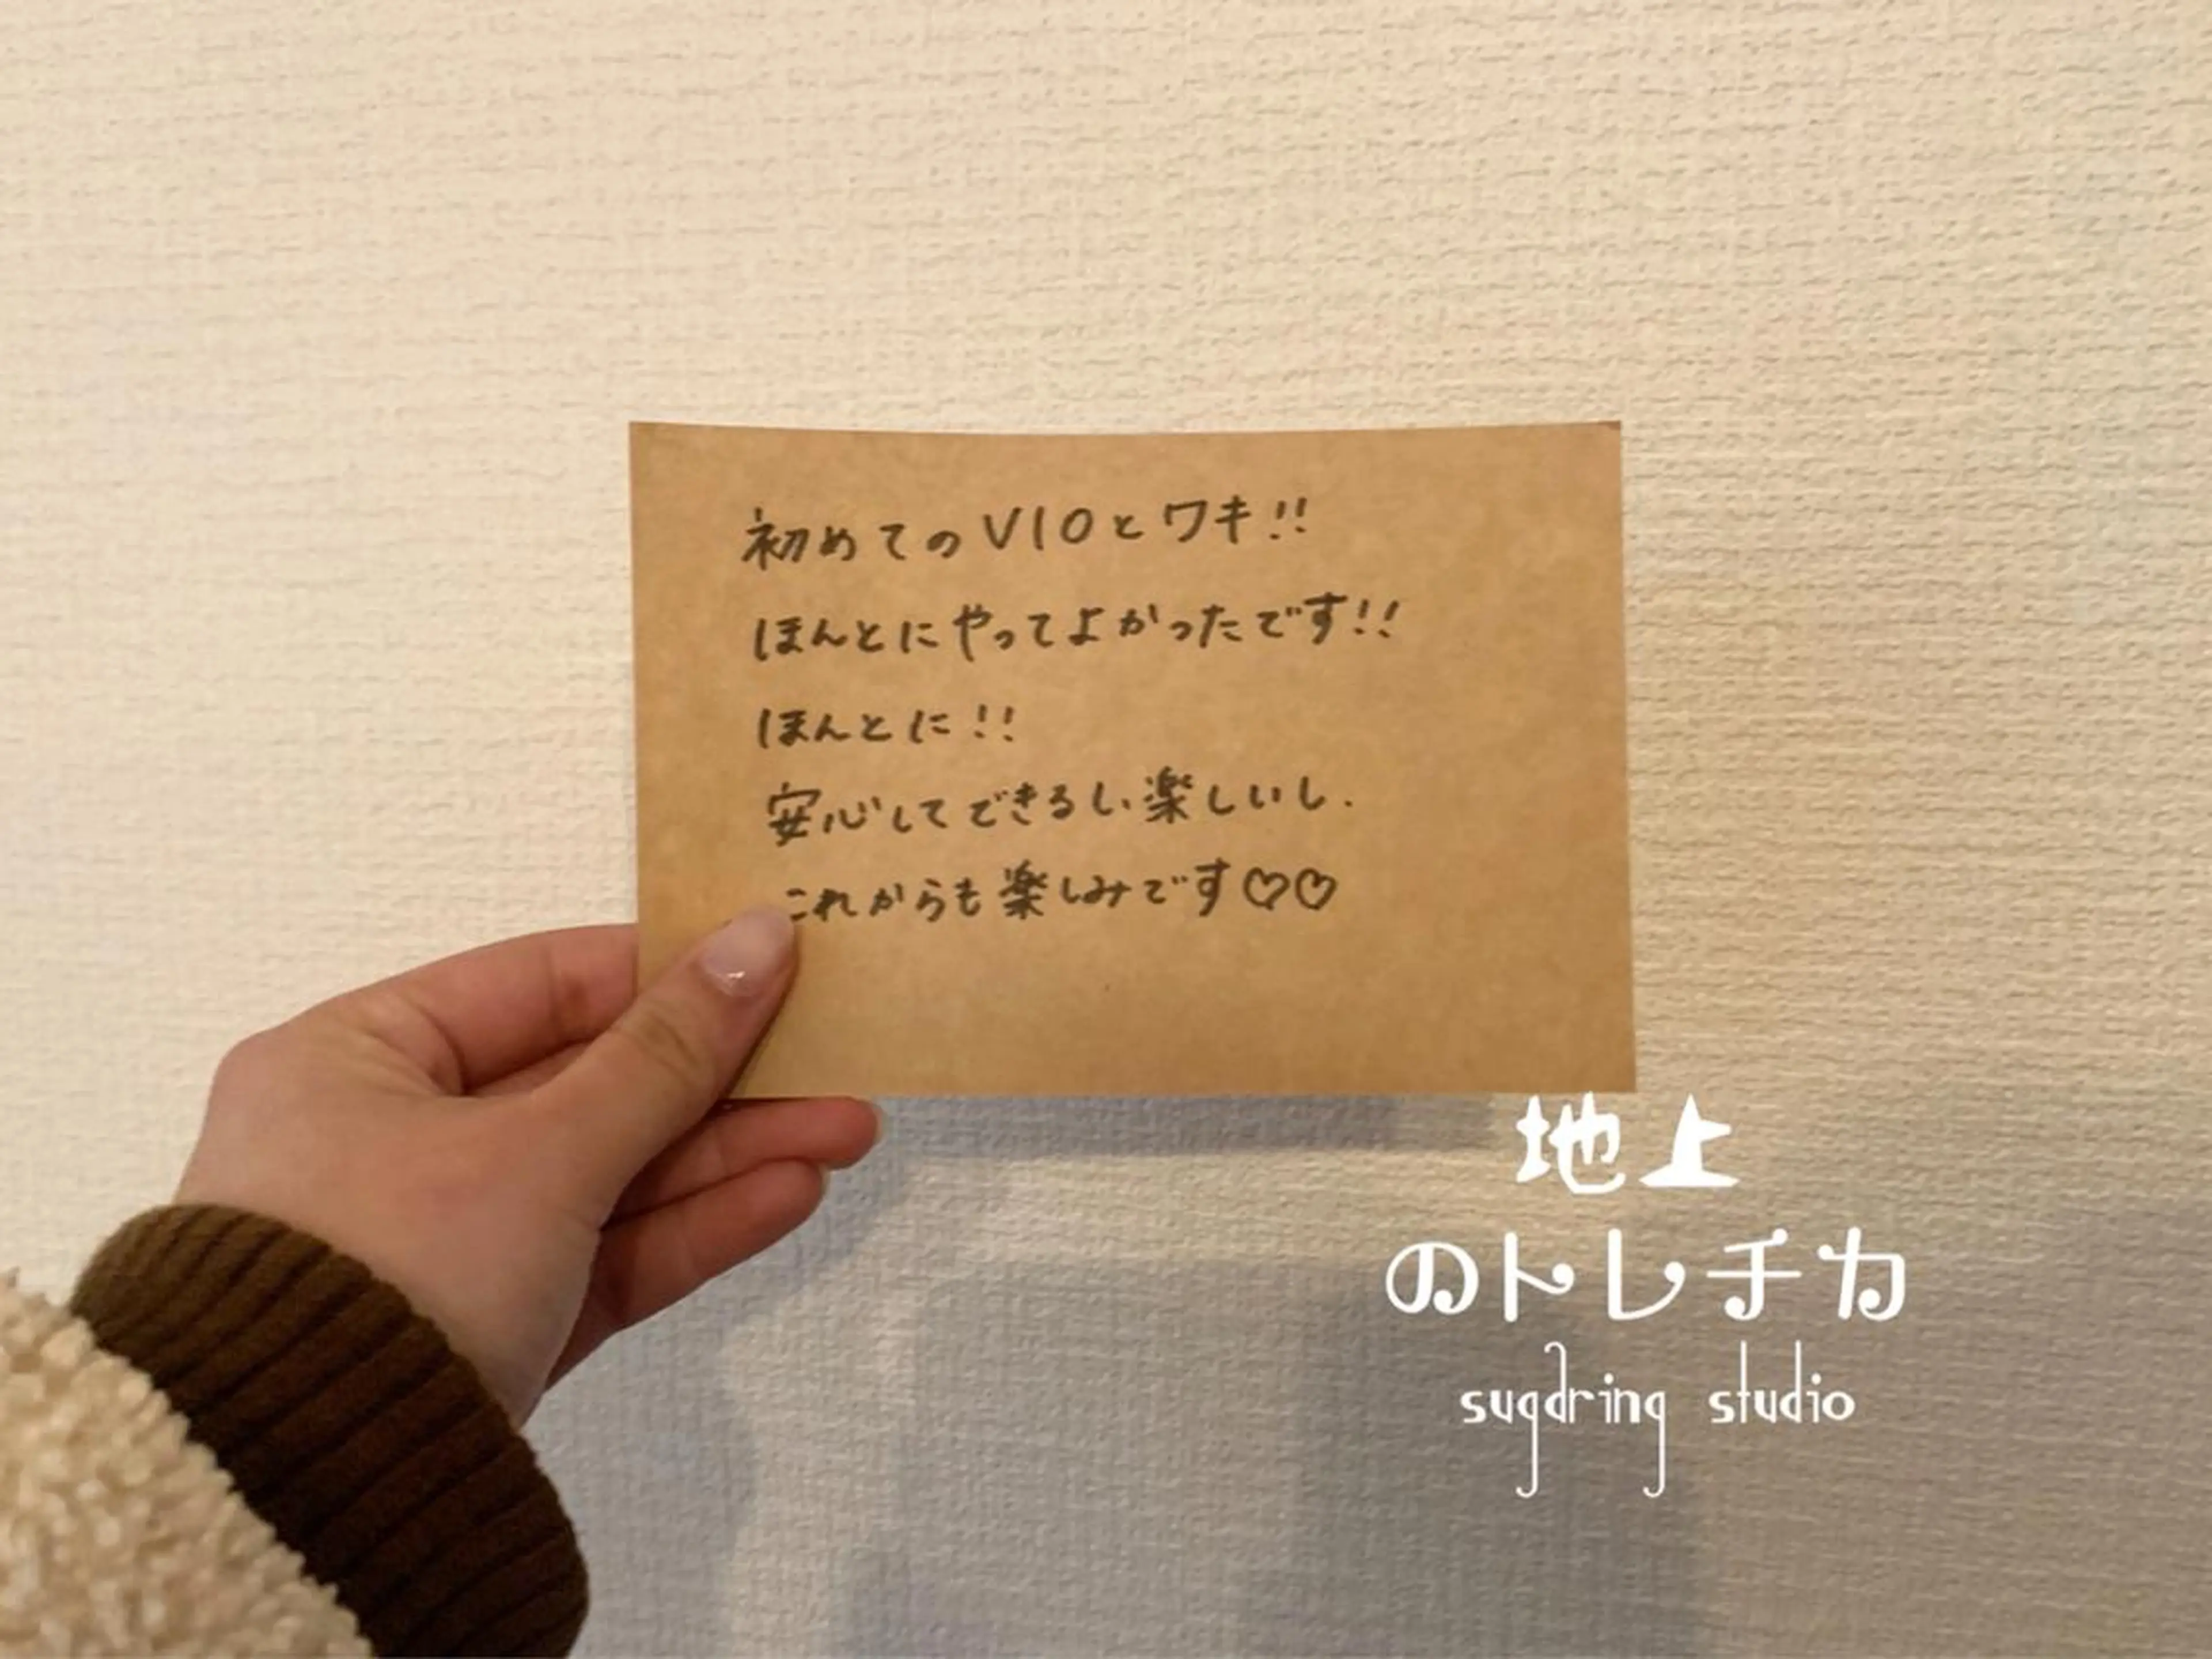 初めてのVIOとワキ!!
ほんとにやってよかったです!!
ほんとに!!
安心してできるし、楽しいし.
これからも楽しみです♡♡
地上
のトレチカ
sugaring studio